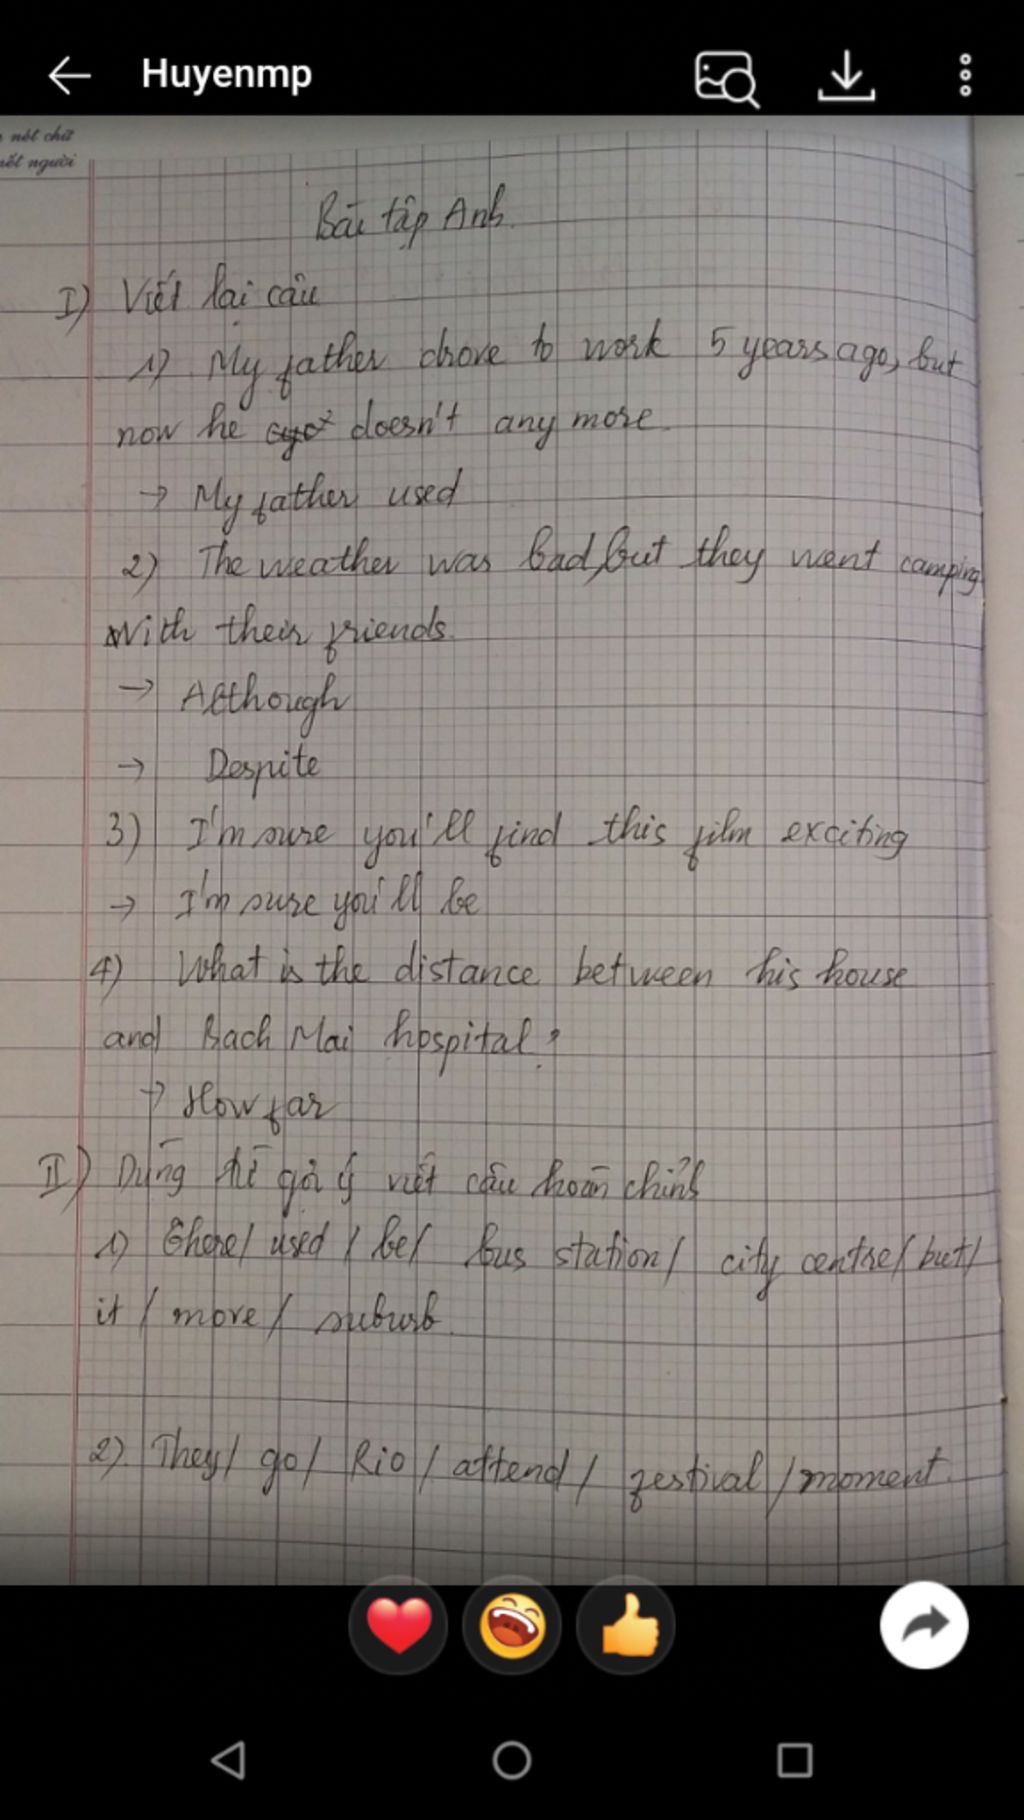 Huyenmp
nét chữ
nết người
Bài tập Anh.
I) Viết lại câu
1) My father drove to work 5 years ago, but
now he doesn't any more.
→ My father used
2) The weather was bad, but they went camping
With their friends.
→ Although
→ Despite
3) I'm sure you'll find this film exciting
→ I'm sure you'll be
4) What is the distance between his house
and Bach Mai hospital?
→ How far
II) Dùng từ gợi ý viết câu hoàn chỉnh
1) There/ used / be/ bus station/ city centre/ but/
it / move / suburb.
2). They/ go/ Rio / attend / festival / moment.